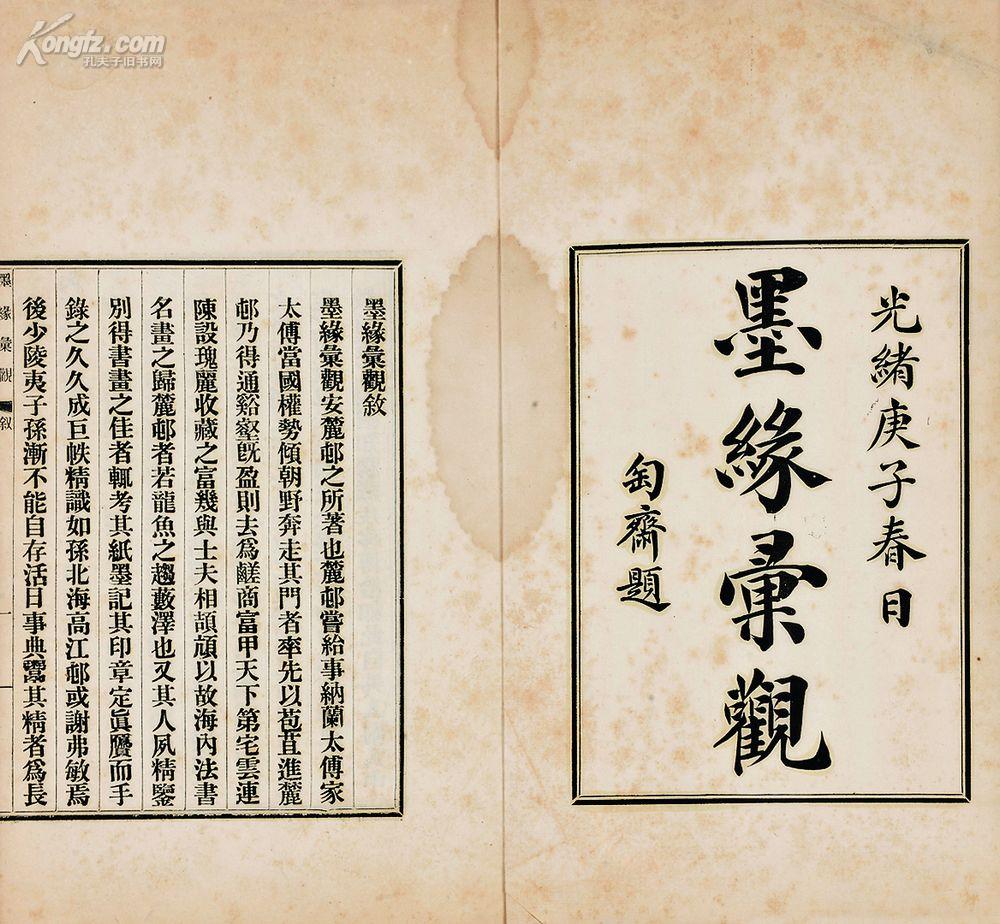 Kongfz.com
孔夫子旧书网
光緒庚子春日
墨緣彙觀
匋齋題
墨緣彙觀敘
墨緣彙觀安麓邨之所著也麓邨嘗給事納蘭太傅家
太傅當國權勢傾朝野奔走其門者率先以苞苴進麓
邨乃得通谿壑旣盈則去爲鹺商富甲天下第宅雲連
陳設瑰麗收藏之富幾與士夫相頡頏以故海內法書
名畫之歸麓邨者若龍魚之趨藪澤也又其人夙精鑒
別得書畫之佳者輒考其紙墨記其印章定眞贗而手
錄之久久成巨帙精識如孫北海高江邨或謝弗敏焉
後少陵夷子孫漸不能自存活日事典鬻其精者爲長
墨緣彙觀 叙
一